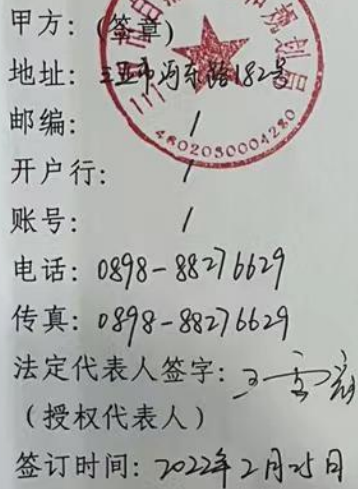 甲方：(签章)
地址：三亚市河东路182号
邮编： /
开户行： /
账号： /
电话：0898-88276629
传真：0898-88276629
法定代表人签字：
（授权代表人）
签订时间：2022年2月25日
4602050004280